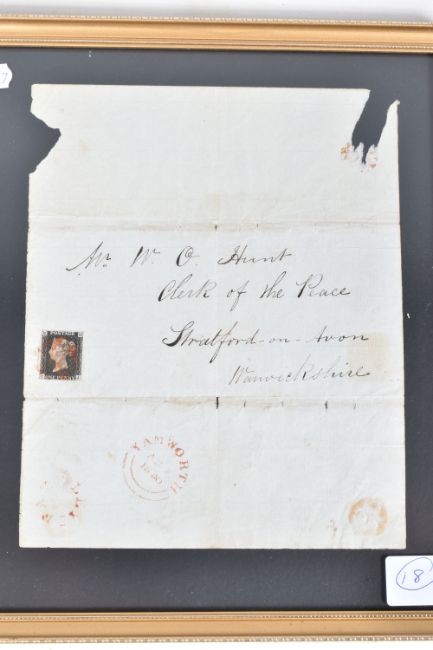 Mr W. O. Hunt
Clerk of the Peace
Stratford-on-Avon
Warwickshire
POSTAGE
ONE PENNY
TAMWORTH
1840
18